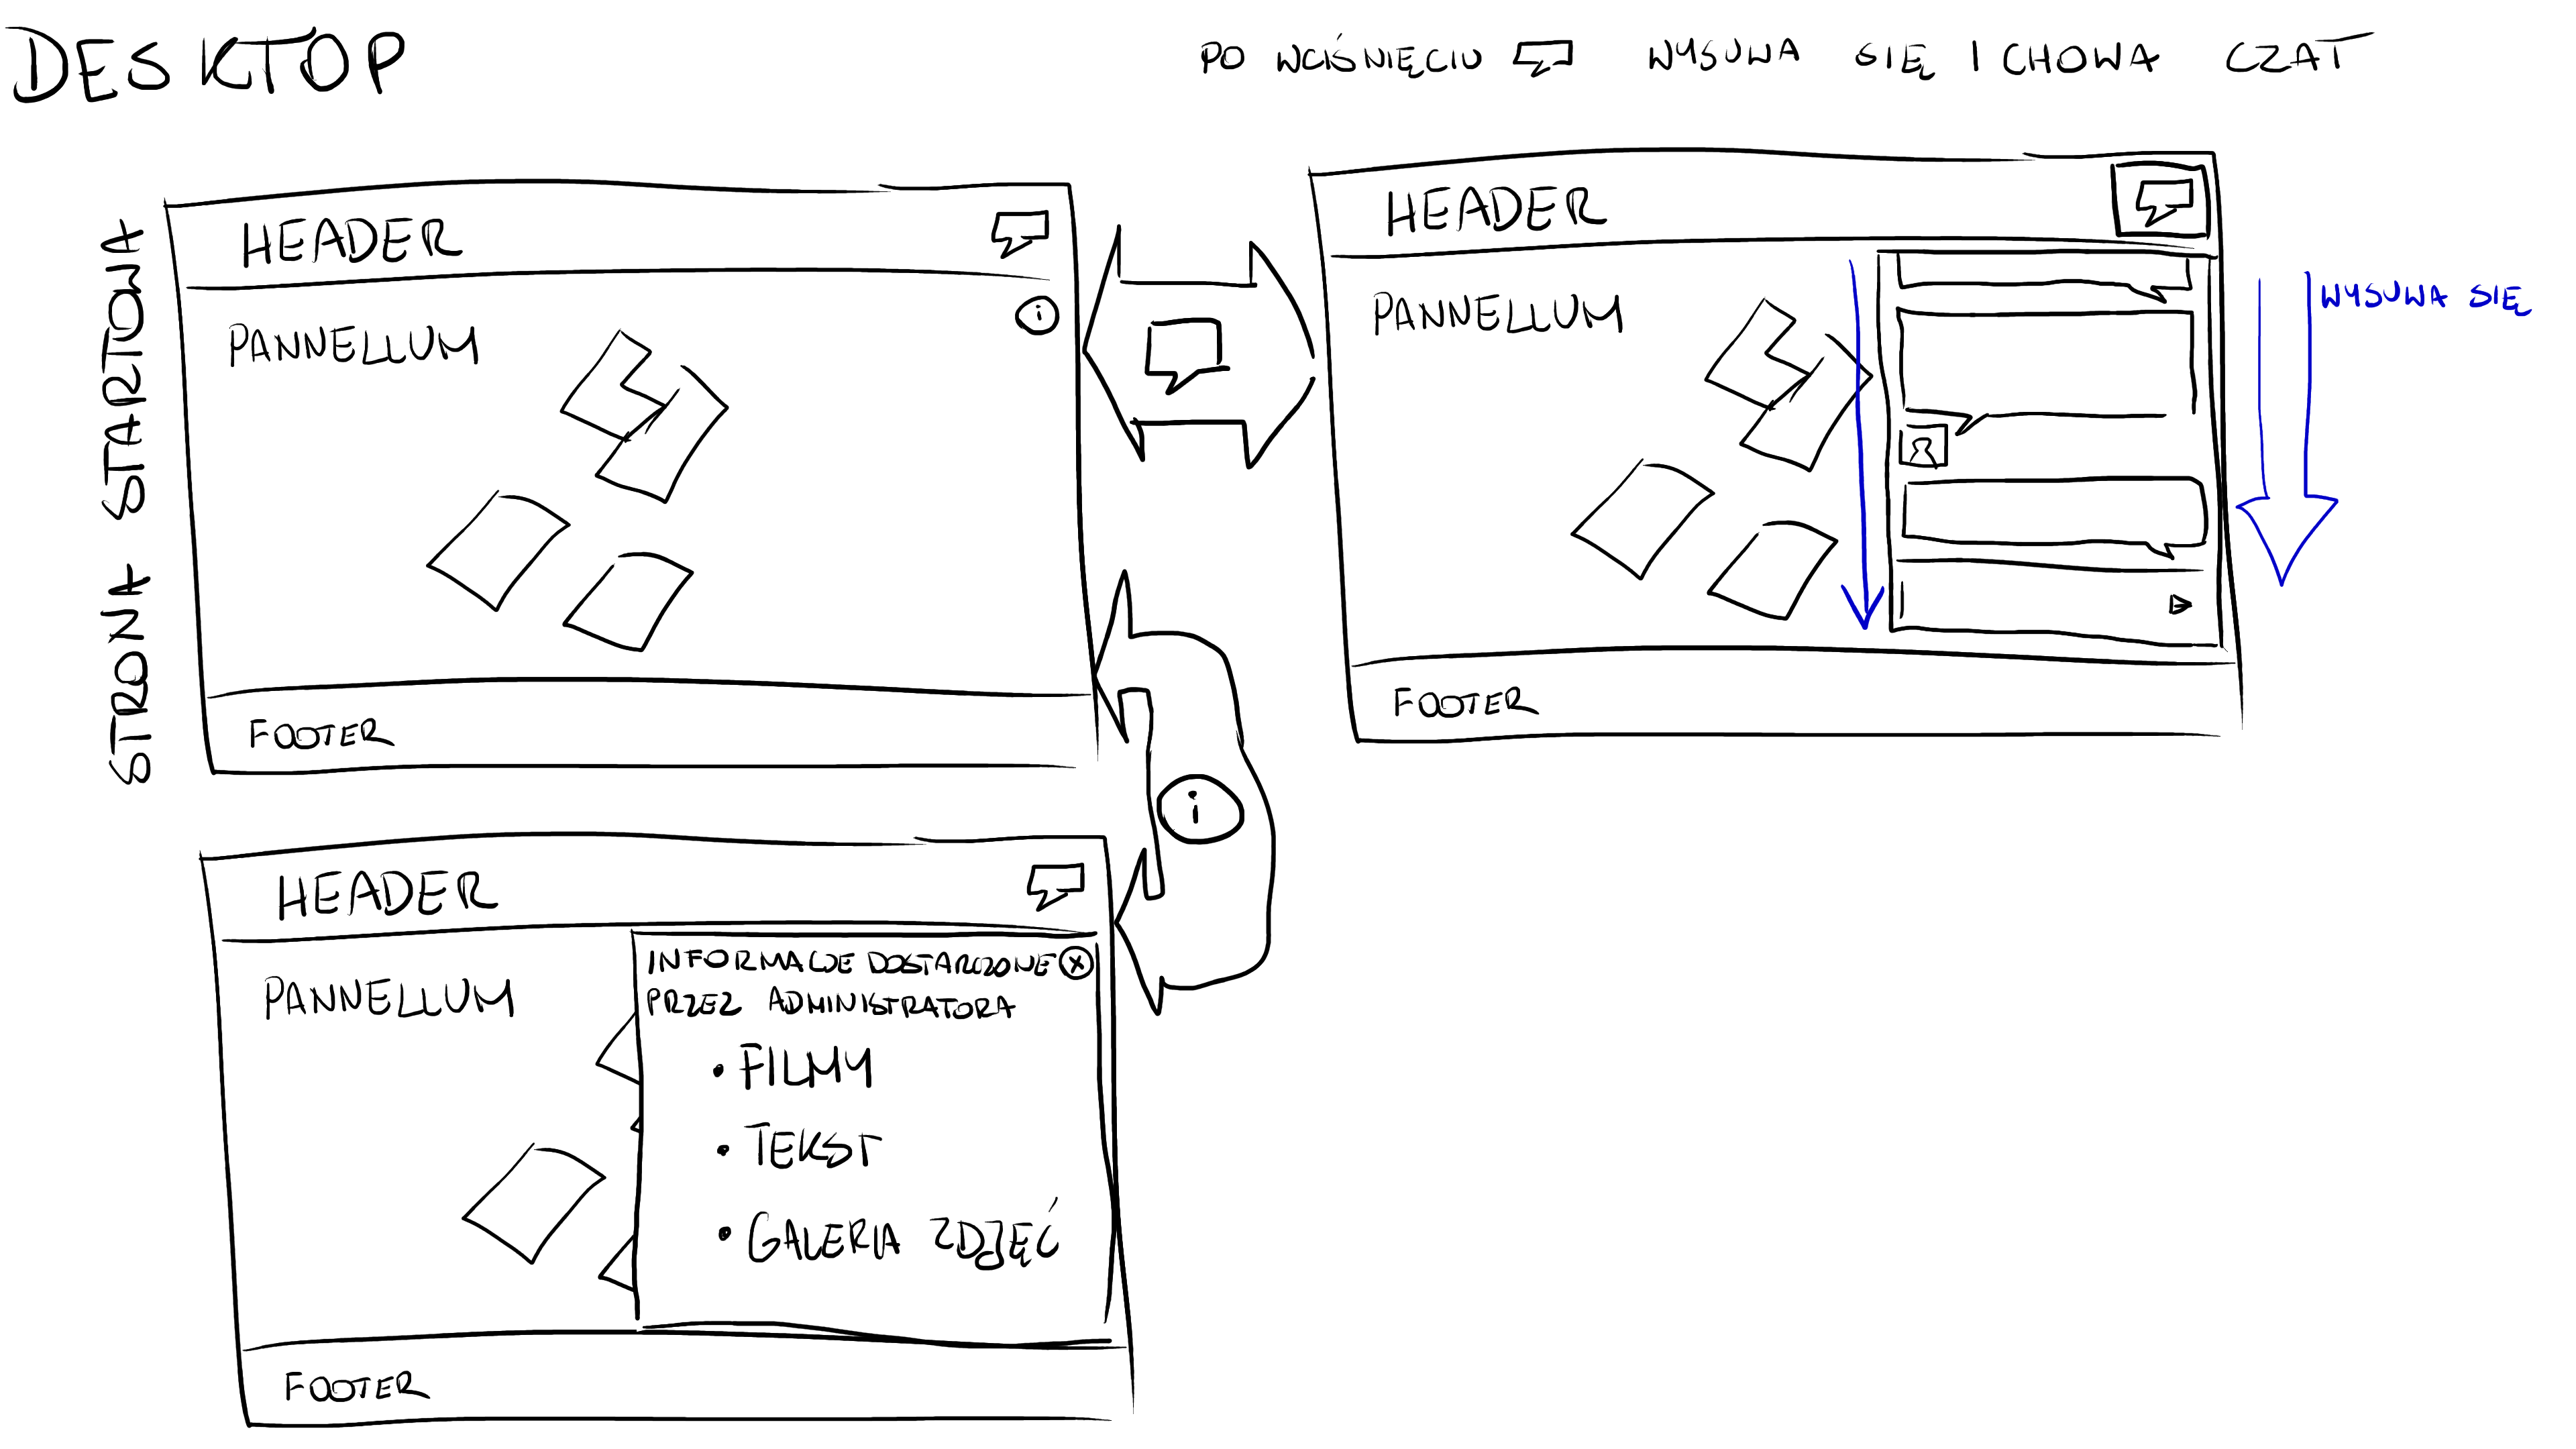 DESKTOP
PO WCIŚNIĘCIU WYSUWA SIĘ I CHOWA CZAT
STRONA STARTOWA
HEADER
i
PANNELLUM
FOOTER
HEADER
PANNELLUM
WYSUWA SIĘ
FOOTER
i
HEADER
PANNELLUM
INFORMACJE DOSTARCZONE X
PRZEZ ADMINISTRATORA
• FILMY
• TEKST
• GALERIA ZDJĘĆ
FOOTER